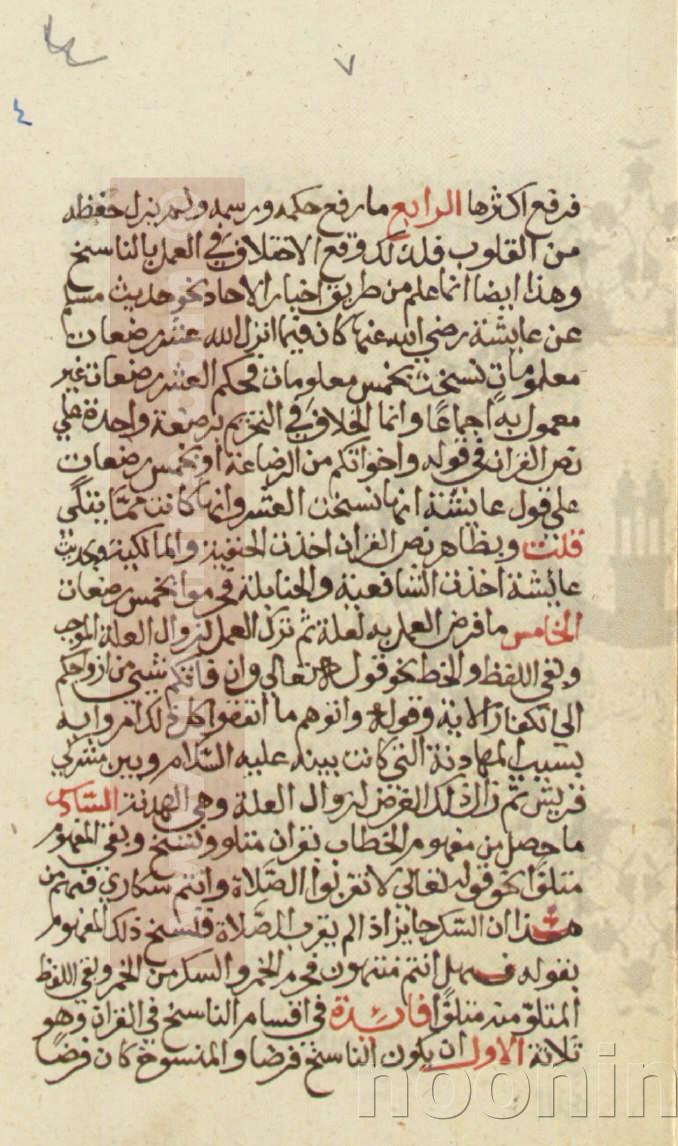 ٧
٤
فرفع اكثرها الرابع ما رفع حكمه ورسمه ولم يزل حفظه
من القلوب فلذلك وقع الاختلاف في العمل بالناسخ
وهذا ايضا انما علم من طريق اخبار الاحاد نحو حديث مسلم
عن عايشة رضي الله عنها كان فيما انزل الله عشر رضعات
معلومات نسخت بخمس معلومات فحكم العشر رضعات غير
معمول به اجماعا وانما الخلاف في التحريم برضعة واحدة علي
نص القران في قوله واخواتكم من الرضاعة او بخمس رضعات
على قول عايشة انها نسخت العشر وانها كانت مما يتلى
قلت وبظاهر نص القران اخذت الحنفية والمالكية وبحديث
عايشة اخذت الشافعية والحنابلة فحرموا بخمس رضعات
الخامس ما فرض العمل به لعلة ثم ترك العمل لزوال العلة الموجبة
وبقي اللفظ والخط نحو قوله تعالى وان فاتكم شيئ من ازواجكم
الى الكفار الاية وقوله واتوهم ما انفقوا كل ذلك امروا به
بسبب المهادنة التي كانت بينه عليه السلام وبين مشركي
قريش ثم زال ذلك الفرض لزوال العلة وهي الهدنة السادس
ما حصل من مفهوم الخطاب بقران متلو ونسخ وبقي المفهوم
متلوا نحو قوله تعالى لا تقربوا الصلاة وانتم سكارى فهم من
هذا ان السكر جايز اذا لم يقرب الصلاة فنسخ ذلك المفهوم
بقوله فهل انتم منتهون فحرم الخمر والسكر من الخمر وبقي اللفظ
المتلو منه متلوا فائدة في اقسام الناسخ في القران وهو
ثلاثة الاول ان يكون الناسخ فرضا والمنسوخ كان فرضا
noonin